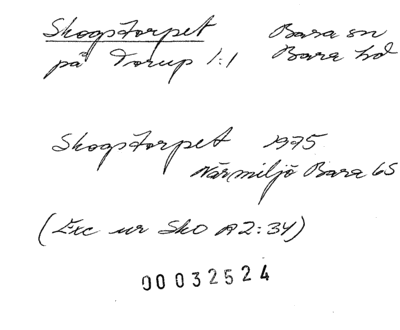 Skogstorpet Bara sn
på Torup 1:1 Bara hd
Skogstorpet 1975
Närmiljö Bara 65
(Exc ur Sko A2:34)
00032524